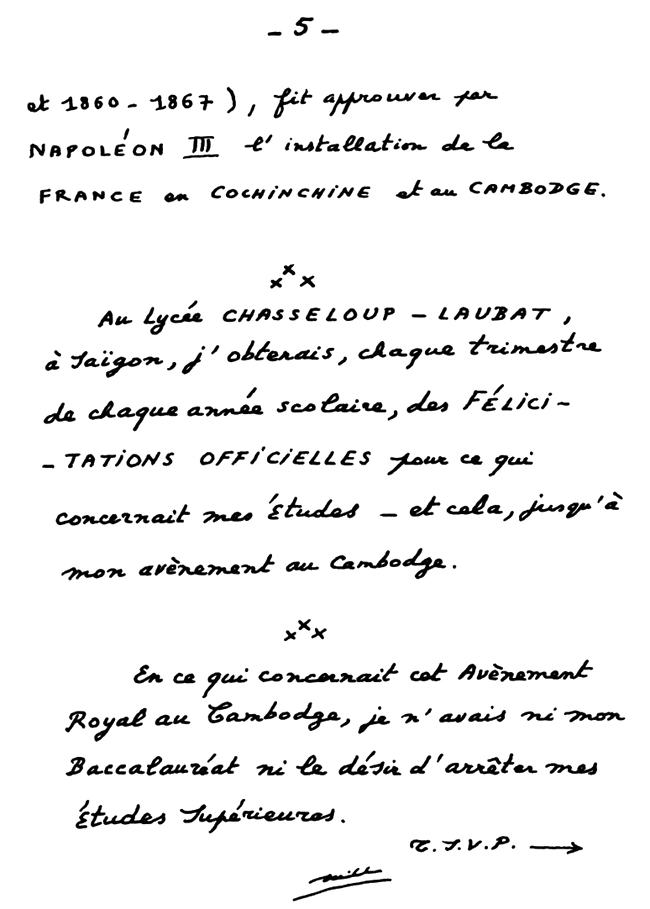 - 5 -
et 1860 - 1867 ), fit approuver par
NAPOLÉON III l'installation de la
FRANCE en COCHINCHINE et au CAMBODGE.
x x x
Au Lycée CHASSELOUP - LAUBAT,
à Saïgon, j'obtenais, chaque trimestre
de chaque année scolaire, des FÉLICI -
- TATIONS OFFICIELLES pour ce qui
concernait mes Études - et cela, jusqu'à
mon avènement au Cambodge.
x x x
En ce qui concernait cet Avènement
Royal au Cambodge, je n'avais ni mon
Baccalauréat ni le désir d'arrêter mes
Études Supérieures.
T.S.V.P. →